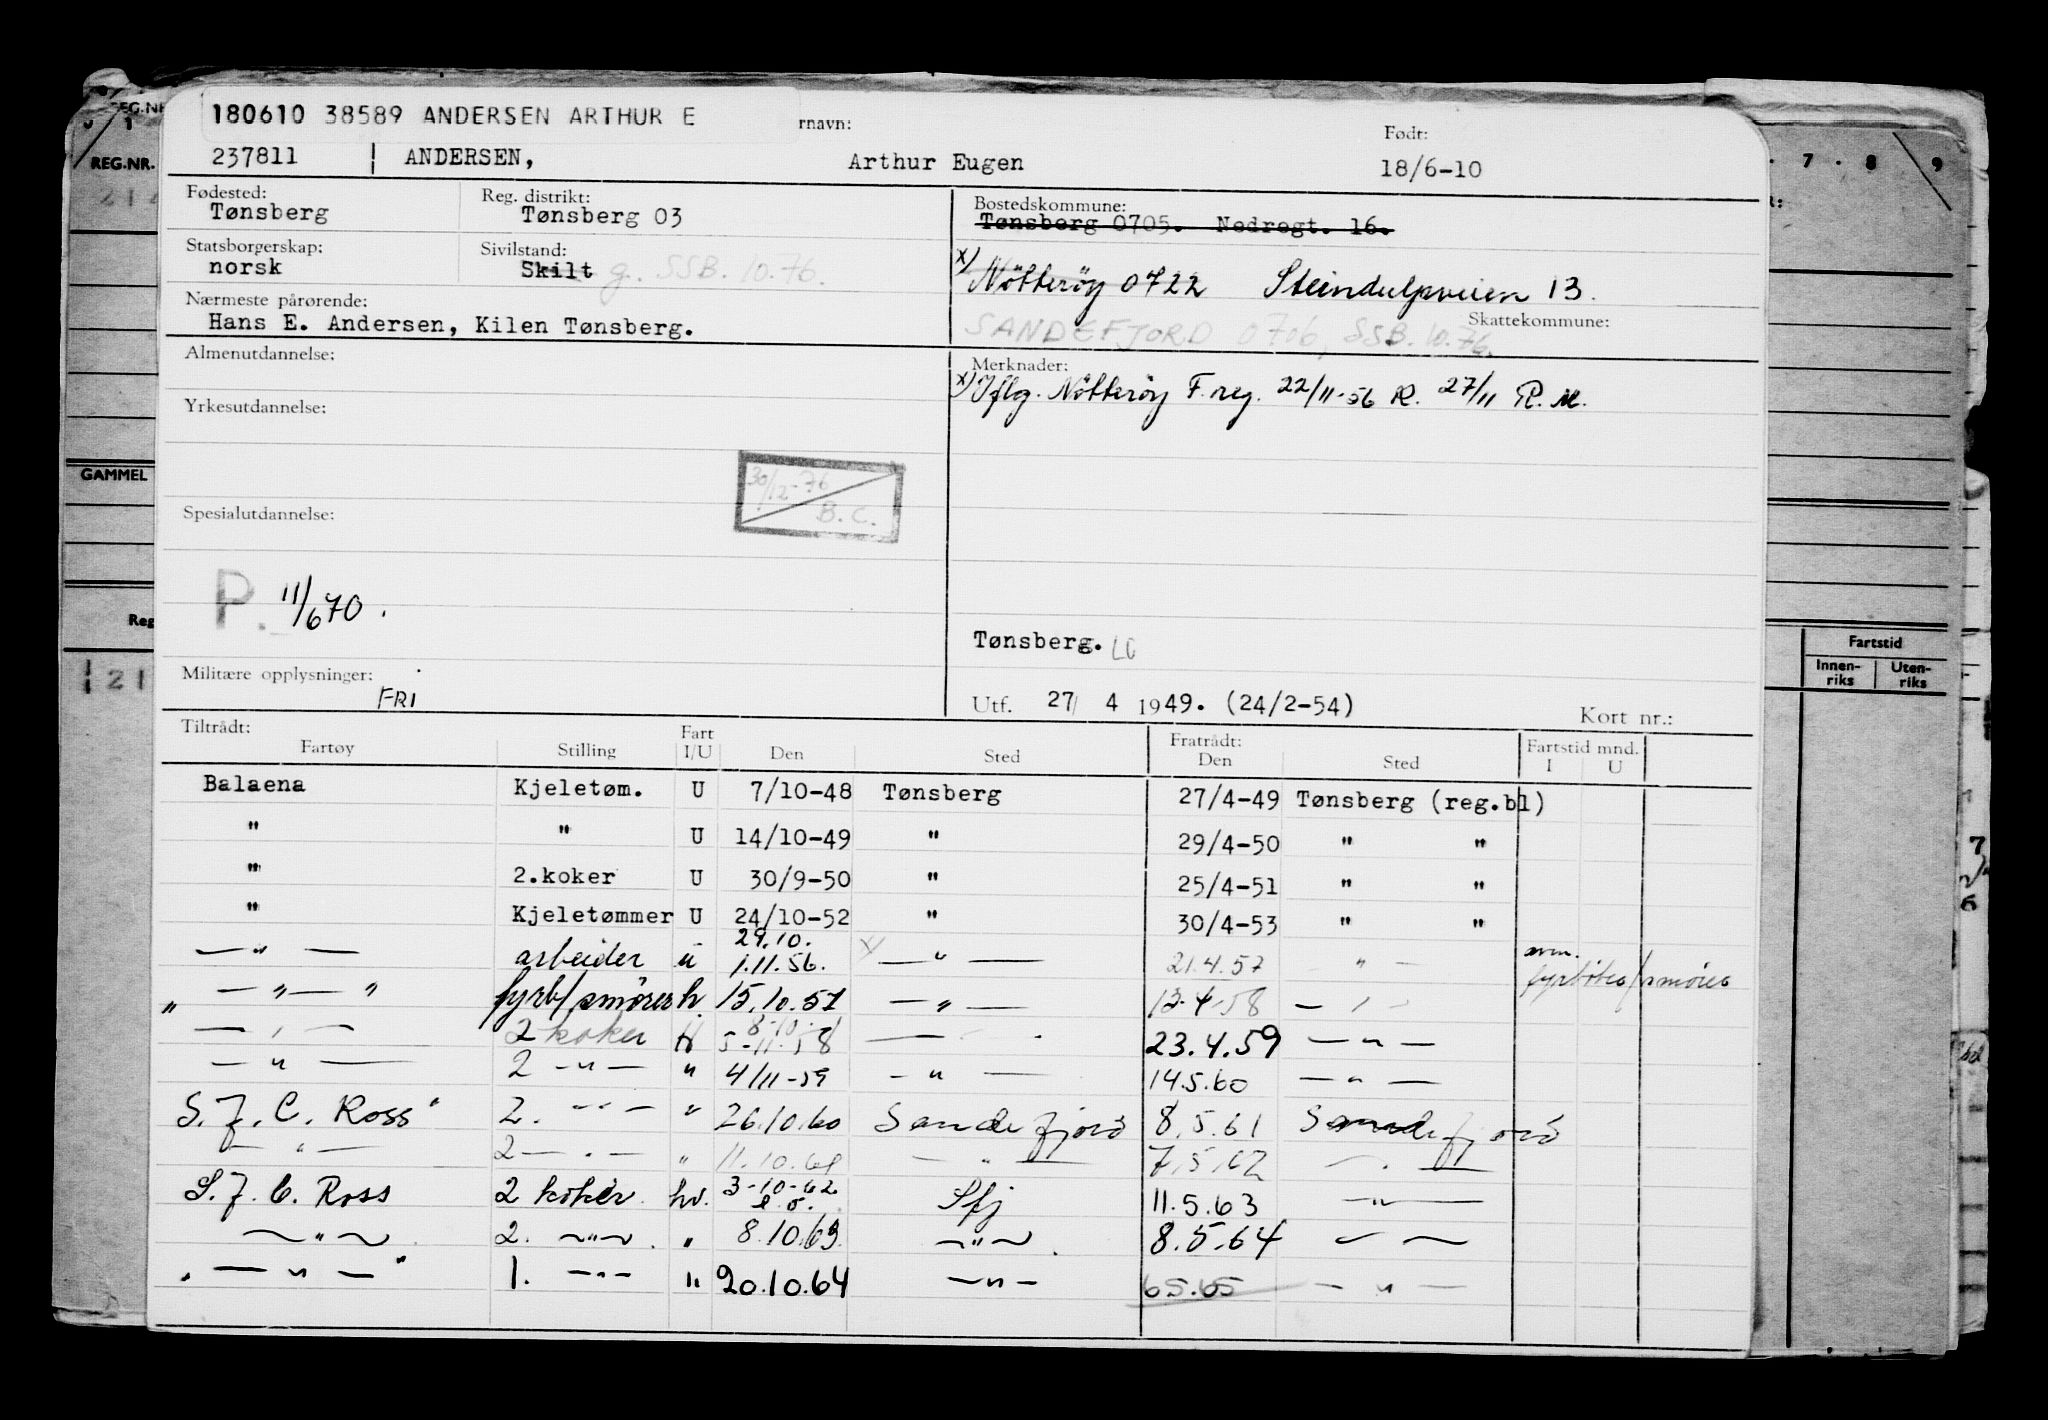 180610 38589 ANDERSEN ARTHUR E
rnavn:
Født:
237811 ANDERSEN, Arthur Eugen 18/6-10
Fødested: Tønsberg
Reg. distrikt: Tønsberg 03
Bostedskommune:
Tønsberg 0705. Nedregt. 16.
Statsborgerskap: norsk
Sivilstand: Skilt g. SSB. 10.76.
x) Nötteröy 0722 Steindulpveien 13.
Nærmeste pårørende:
Hans E. Andersen, Kilen Tønsberg.
Skattekommune:
SANDEFJORD 0706, SSB. 10.76.
Almenutdannelse:
Merknader:
x) Iflg. Nötteröy F. reg. 22/11-56 R. 27/11 R. M.
Yrkesutdannelse:
30/12-76
B. C.
Spesialutdannelse:
P. 11/6 70.
Tønsberg. LC
Militære opplysninger: FRI
Utf. 27/ 4 1949. (24/2-54)
Kort nr.:
Tiltrådt:
Fartøy Stilling Fart I/U Den Sted Fratrådt: Den Sted Fartstid mnd. I U
Balaena Kjeletøm. U 7/10-48 Tønsberg 27/4-49 Tønsberg (reg.bl)
" " U 14/10-49 " 29/4-50 " "
" 2.koker U 30/9-50 " 25/4-51 " "
" Kjeletømmer U 24/10-52 " 30/4-53 " "
29.10.
— " — arbeider u 1.11.56. x — " — 21.4.57 — " —
fyrbøter/smører
" — " — " fyrb/smører h. 15.10.57 — " — 12.4.58 — " —
8-10-
— " — 2 koker H 5-11-58 — 23.4.59 — " —
— " — 2 — " — " 4/11-59 — " — 14.5.60 — " —
S. J. C. Ross" 2. — " — " 26.10.60 Sandefjord 8.5.61 Sandefjord
— " — 2 — " — " 11.10.61 — " — 7.5.62 — " —
S. J. C. Ross 2 koker hv. 3-10-62 Sfj 11.5.63 — " —
— " — 2. — " — . " 8.10.63. — " — . 8.5.64 — " —
" — " — " 1. — " — " 20.10.64 — " — 6.5.65 — " —
REG.NR.
GAMMEL
Reg
21
7 · 8 9
Fartstid
Innen-
riks
Uten-
riks
7
6